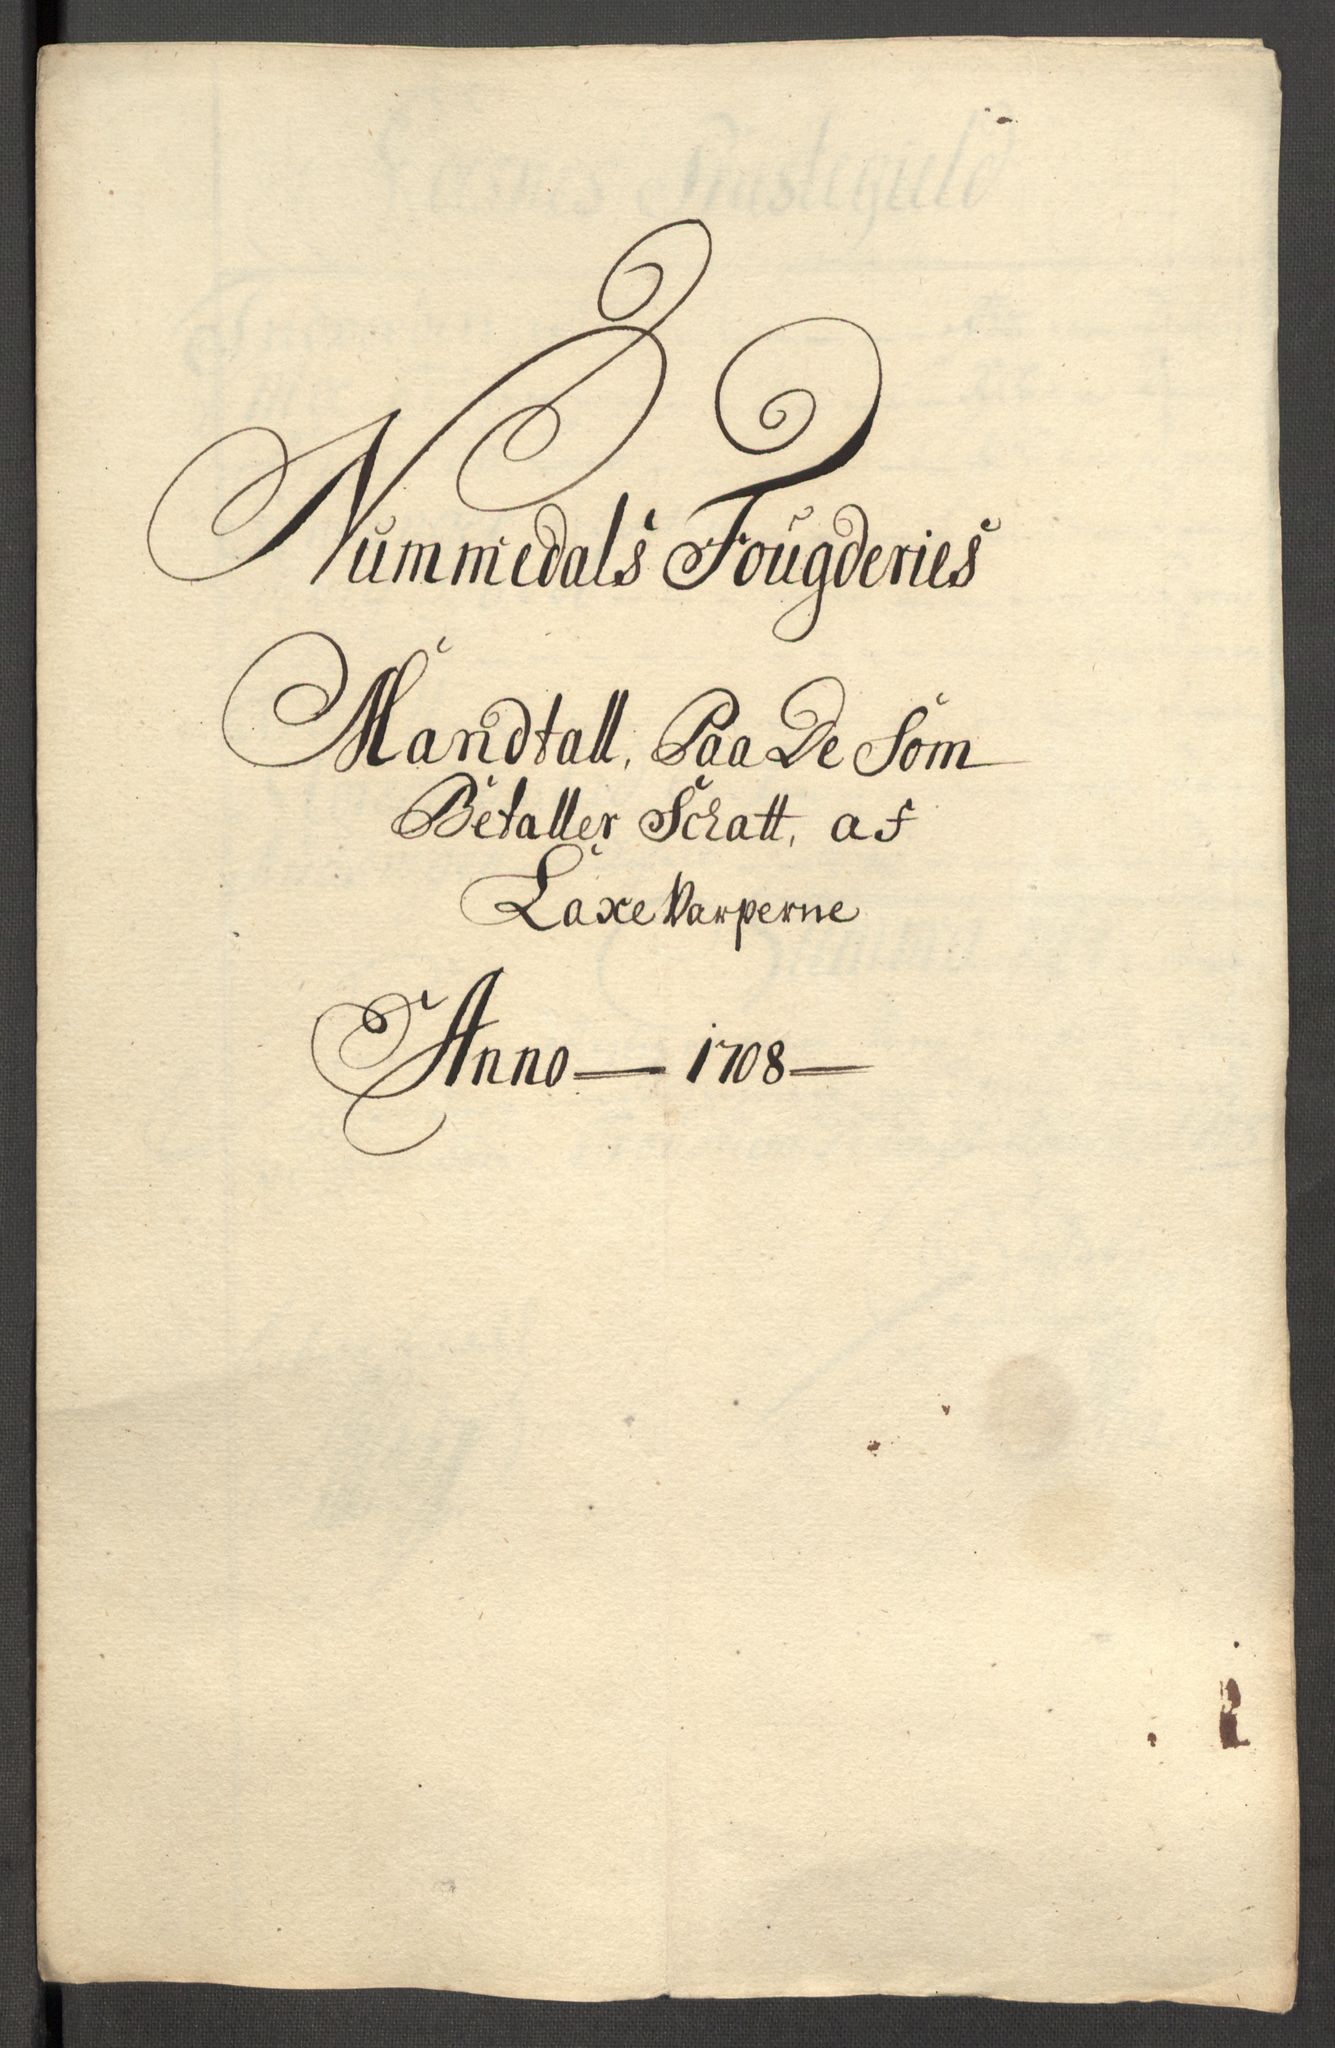 Nummedals Fougderies
Mandtall, Paa De Som
Betaller Schatt, af
Laxe Varperne
Anno — 1708 —